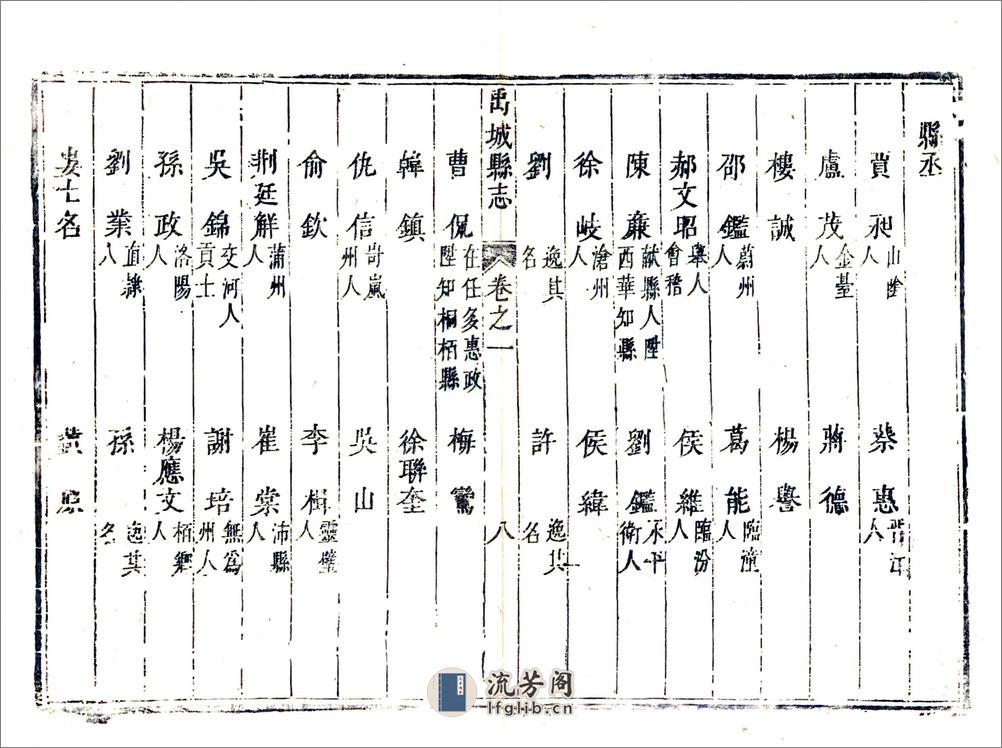 縣丞
賈昶 山陰人 蔡惠 晉江人
盧茂 金臺人 蔣德
樓誠 楊譽
邵鑑 蔚州人 葛能 臨潼人
郝文昭 會稽舉人 侯維 臨汾人
陳廉 献縣人陞西華知縣 劉鑑 永平衛人
徐岐 滄州人 侯緯
劉 逸其名 許 逸其名
禹城縣志 卷之一 八
曹侃 在任多惠政陞知桐栢縣 梅鸞
韓鎮 徐聯奎
仇信 岢嵐州人 吳山
俞欽 李楫 靈璧人
荆廷觧 蒲州人 崔棠 沛縣人
吳錦 交河人貢士 謝培 無為州人
孫政 洛陽人 楊應文 栢鄉人
劉業 直隸人 孫 逸其名
士名 黄
流芳阁
lfglib.cn